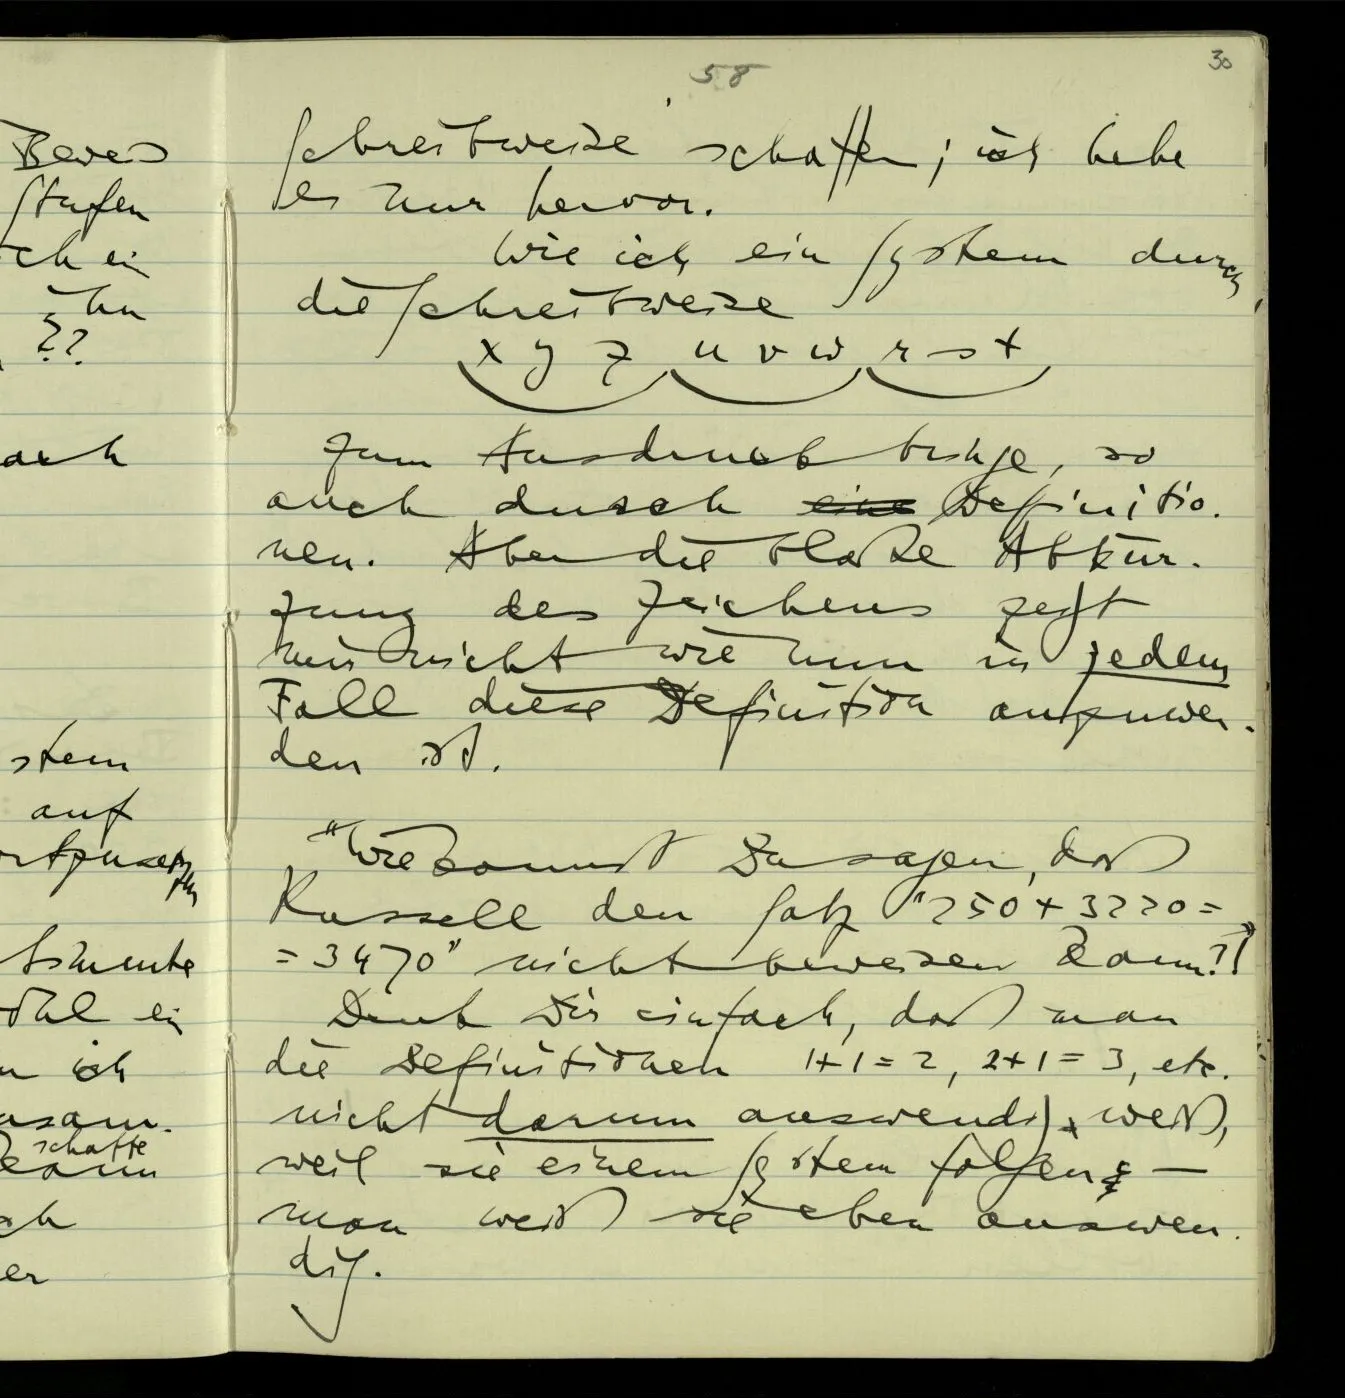 58
30
Beweis
Stufen
ch ein
ihn
??
ach
stem
auf
stimmte
ein
ich
schaffe
kann
er
Schreibweise schaffen; ich hebe
es nur hervor.
Wie ich ein System durch
die Schreibweise
x y z u v w r s t
zum Ausdruck bringe, so
auch durch eine Definitio-
nen. Aber die bloße Abkür-
zung des Zeichens zeigt
mir nicht wie nun in jedem
Fall diese Definition anzuwen-
den ist.
"Wie kannst Du sagen, daß
Russell den Satz "250 + 3220 =
= 3470" nicht beweisen kann?!"
Denk Dir einfach, daß man
die Definitionen 1+1=2, 2+1=3, etc.
nicht darum auswendig weiß,
weil sie einem System folgen; –
man weiß sie eben auswen-
dig.